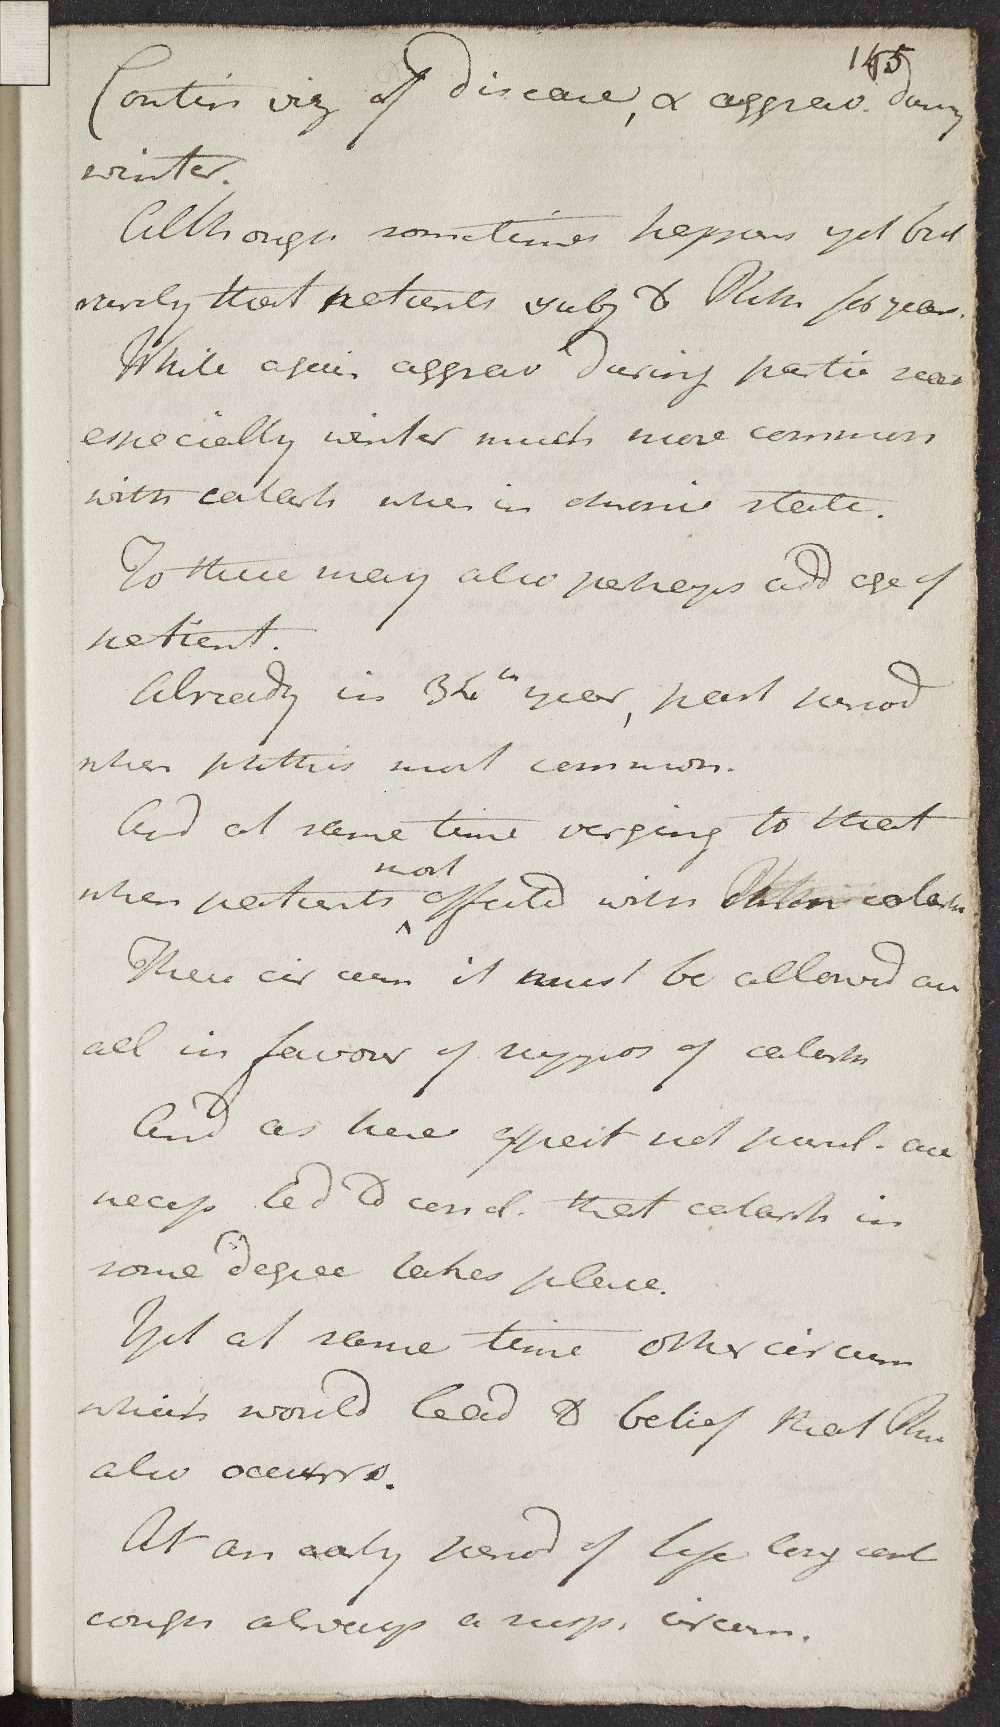 145
Contin viz of disease, & aggrav. during
winter.
Although sometimes happens yet but
rarely that patients subj to Phth for years.
While again aggrav during partic seas
especially winter much more common
with catarrh when in chronic state.
To these may also perhaps add age of
patient.
Already in 34th year, past period
when phthisis most common.
And at same time verging to that
when patients most affected with catarrh
These circum it must be allowed are
all in favour of suppos of catarrh
And as here expect not purul. are
necess led to concl. that catarrh in
some degree takes place.
Yet at same time other circum
which would lead to belief that Phth
also occurrs.
At an early period of life long cont
cough always a susp. circum.